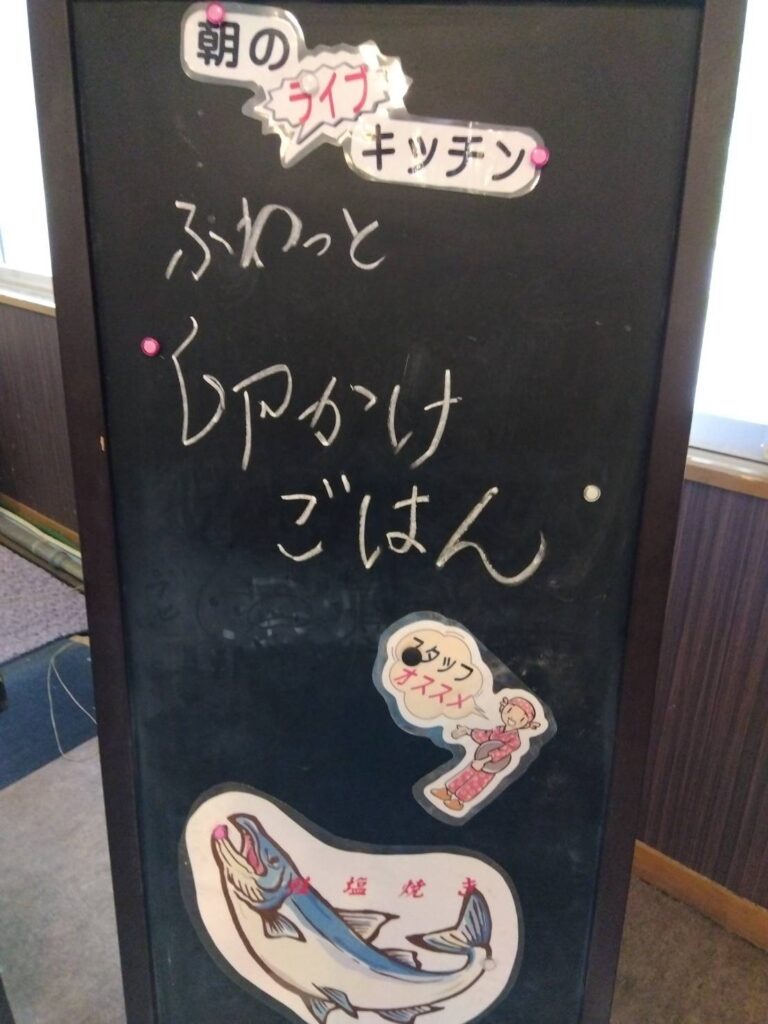 朝の
ライブ
キッチン
ふわっと
卵かけ
ごはん
スタッフ
オススメ
塩焼き